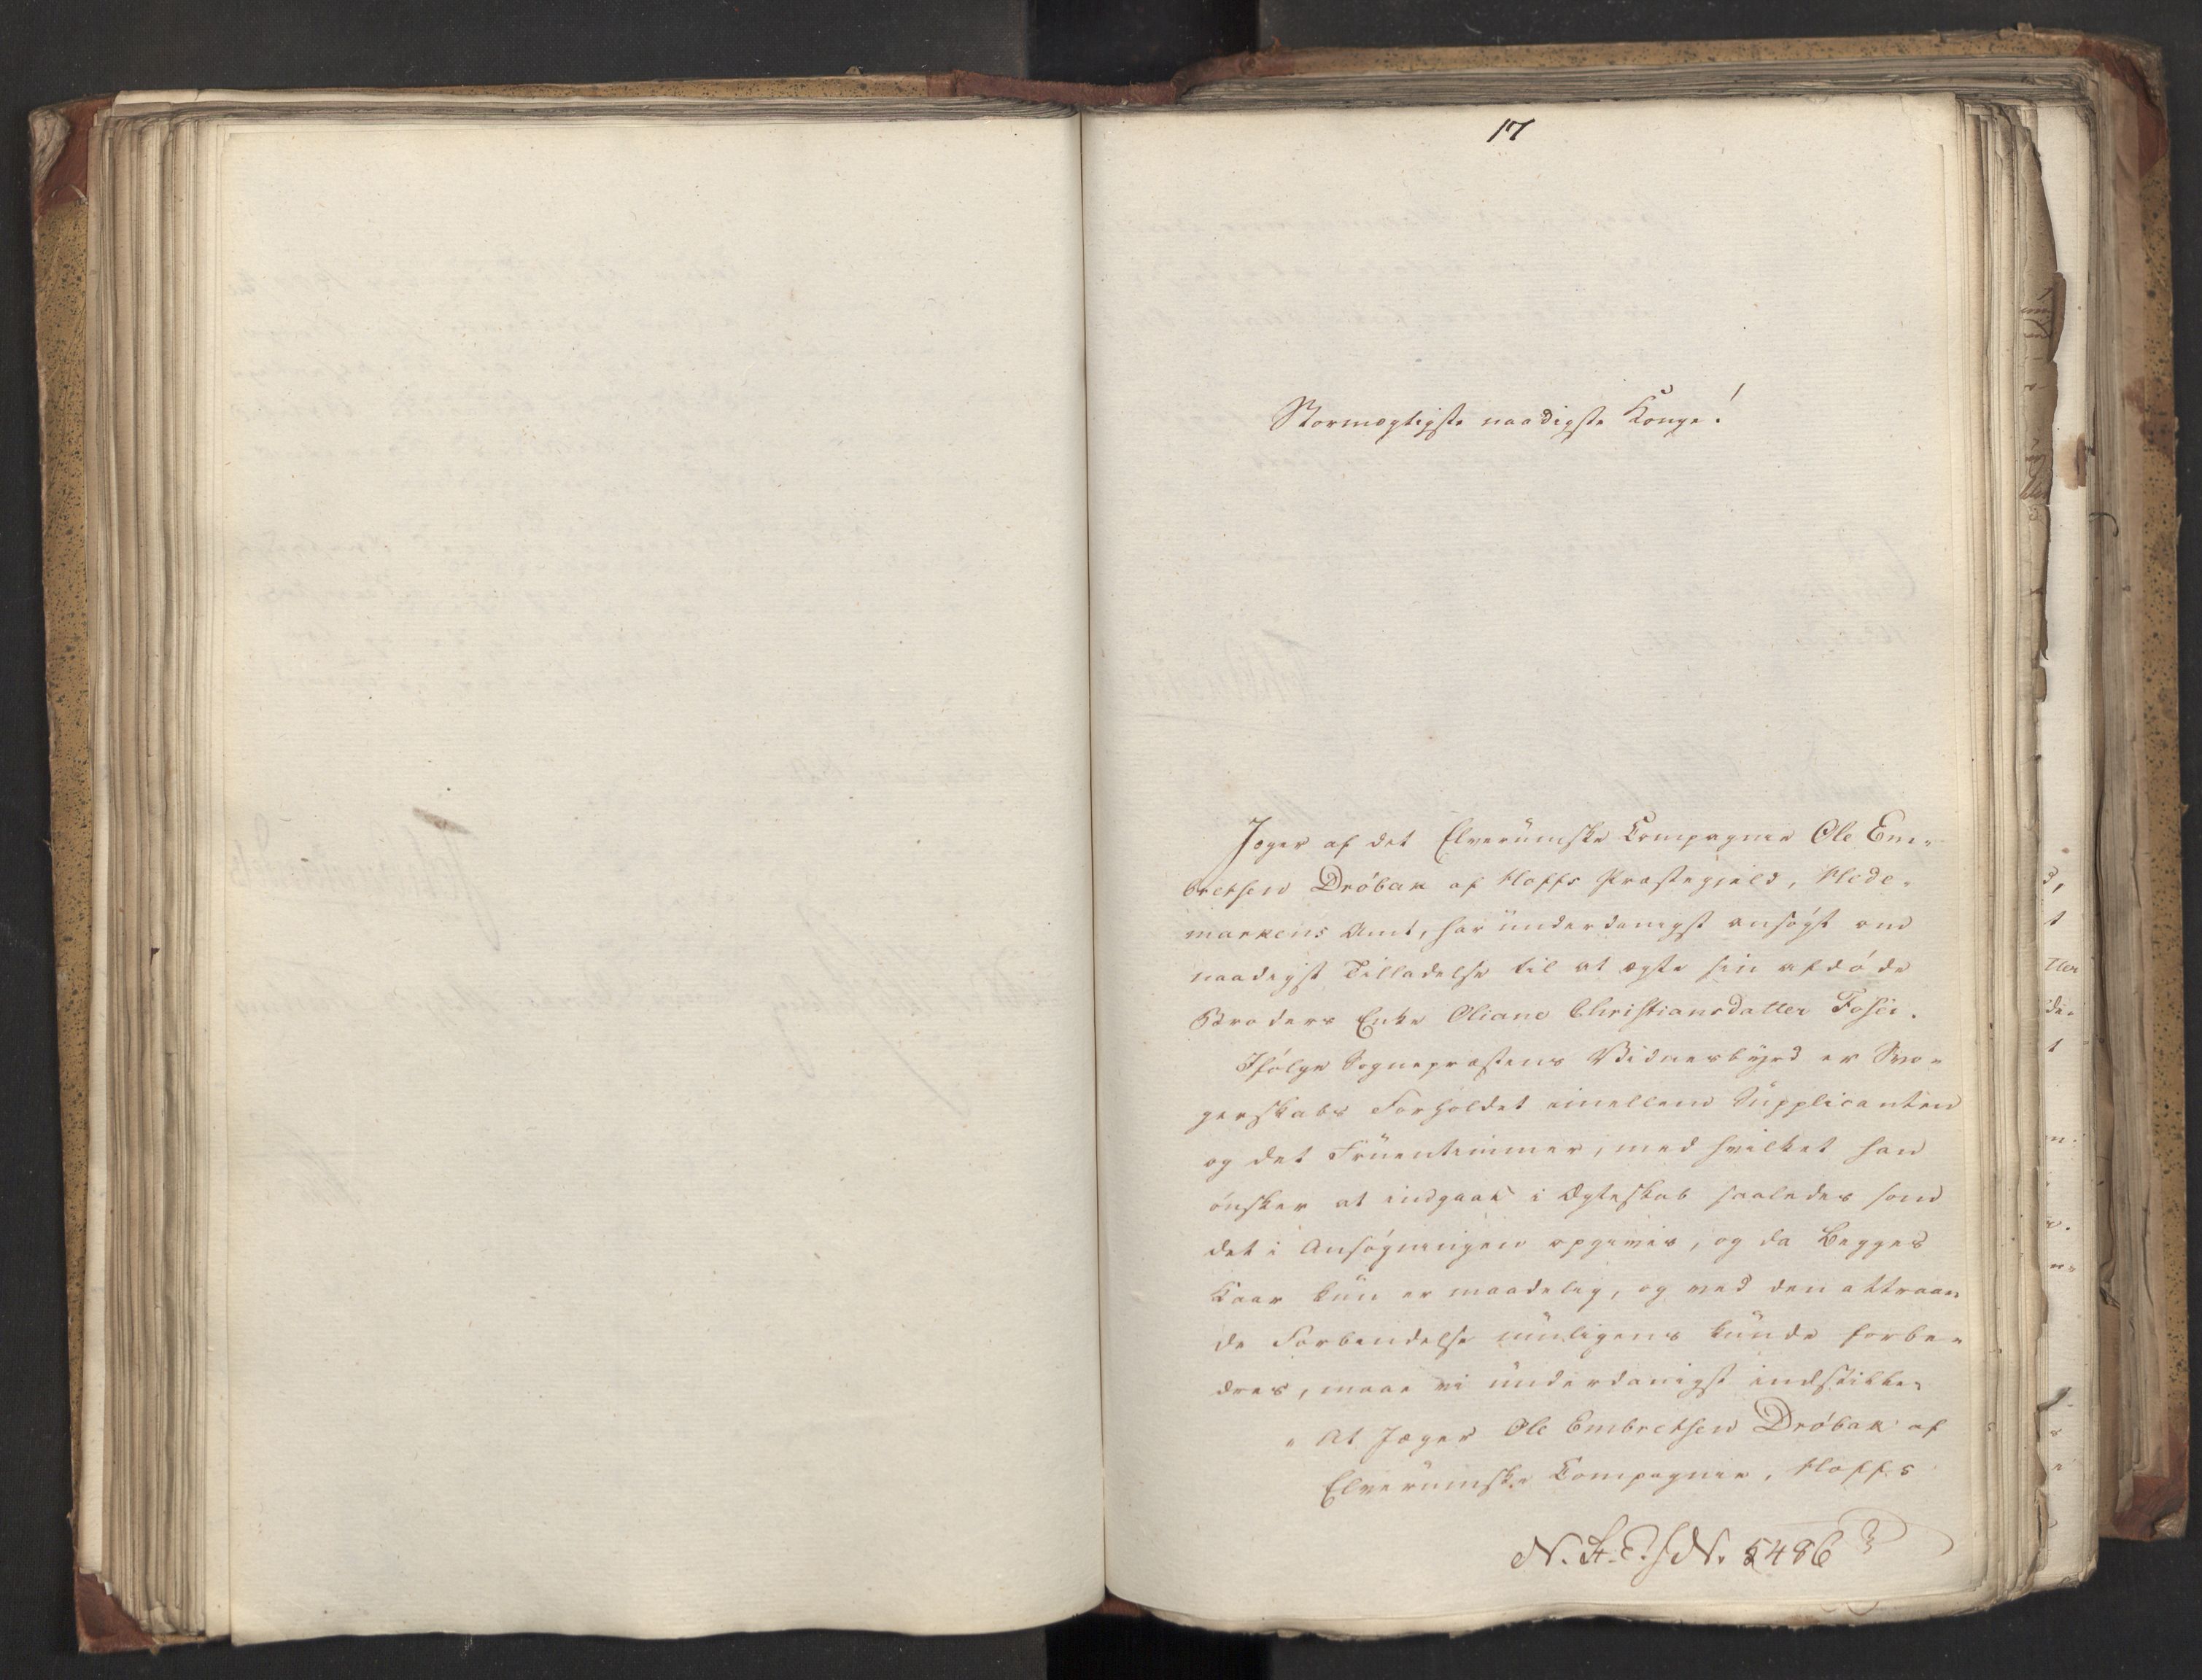 17
Stormægtigste naadigste Konge!
Jæger af det Elverumske Compagnie Ole Em-
bretsen Dröbak af Hoffs Præstegjeld, Hede-
markens Amt, har underdanigst ansögt om
naadigst Tilladelse til at ægte sin afdöde
Broders Enke Oliane Christiansdatter Fosei.
Ifölge Sognepræstens Vidnesbyrd er Svo-
gerskabs Forholdet imellem Supplicanten
og det Fruentimmer, med hvilket han
önsker at indgaae i Ægteskab saaledes som
det i Ansögningen opgives, og da Begges
Kaar kun er maadelig, og ved den attraae-
de Forbindelse muligens kunde forbe-
dres, maae vi underdanigst indstille:
" At Jæger Ole Embretsen Dröbak af
Elverumske Compagnie, Hoffs
N. 5486